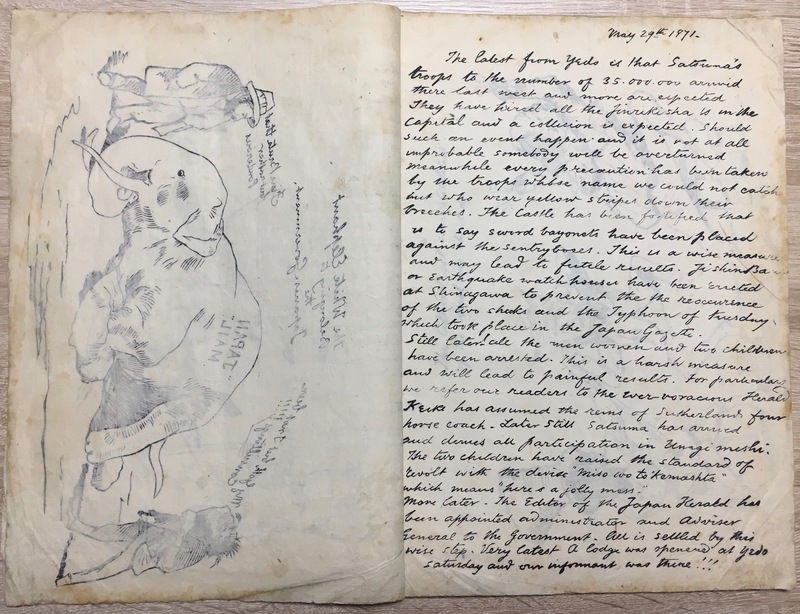 May 29th 1871-
The latest from Yedo is that Satsuma's
troops to the number of 35.000.000 arrived
there last week and more are expected
They have hired all the Jinrikisha is in the
Capital and a collision is expected. Should
such an event happen and it is not at all
improbable somebody will be overturned
meanwhile every precaution has been taken
by the troops whose name we could not catch
but who wear yellow stripes down their
breeches. The Castle has been fortified that
is to say sword bayonets have been placed
against the sentryboxes. This is a wise measure
and may lead to futile results. Jishin Ban
or Earthquake watch houses have been erected
at Shinagawa to prevent the the reoccurence
of the two shocks and the Typhoon of Tuesday.
which took place in the Japan Gazette.
Still later. all the men women and two children
have been arrested. This is a harsh measure
and will lead to painful results. For particulars
we refer our readers to the ever-voracious Herald
Keiki has assumed the reins of Sutherlands four
horse coach. Later Still Satsuma has arrived
and denies all participation in
The two children have raised the standard of
revolt with the devise "miso wo to kemashta"
which means "here's a jolly mess."
More later. The Editor of the Japan Herald has
been appointed administrator and Adviser
General to the Government. All is settled by this
wise step. Very latest A lodge was opened at Yedo
Saturday and our informant was there!!!
The White Elephant
Belonging to
the
Japanese Government
"JAPAN
MAIL"